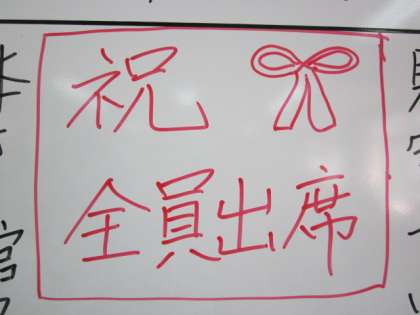 祝
全員出席